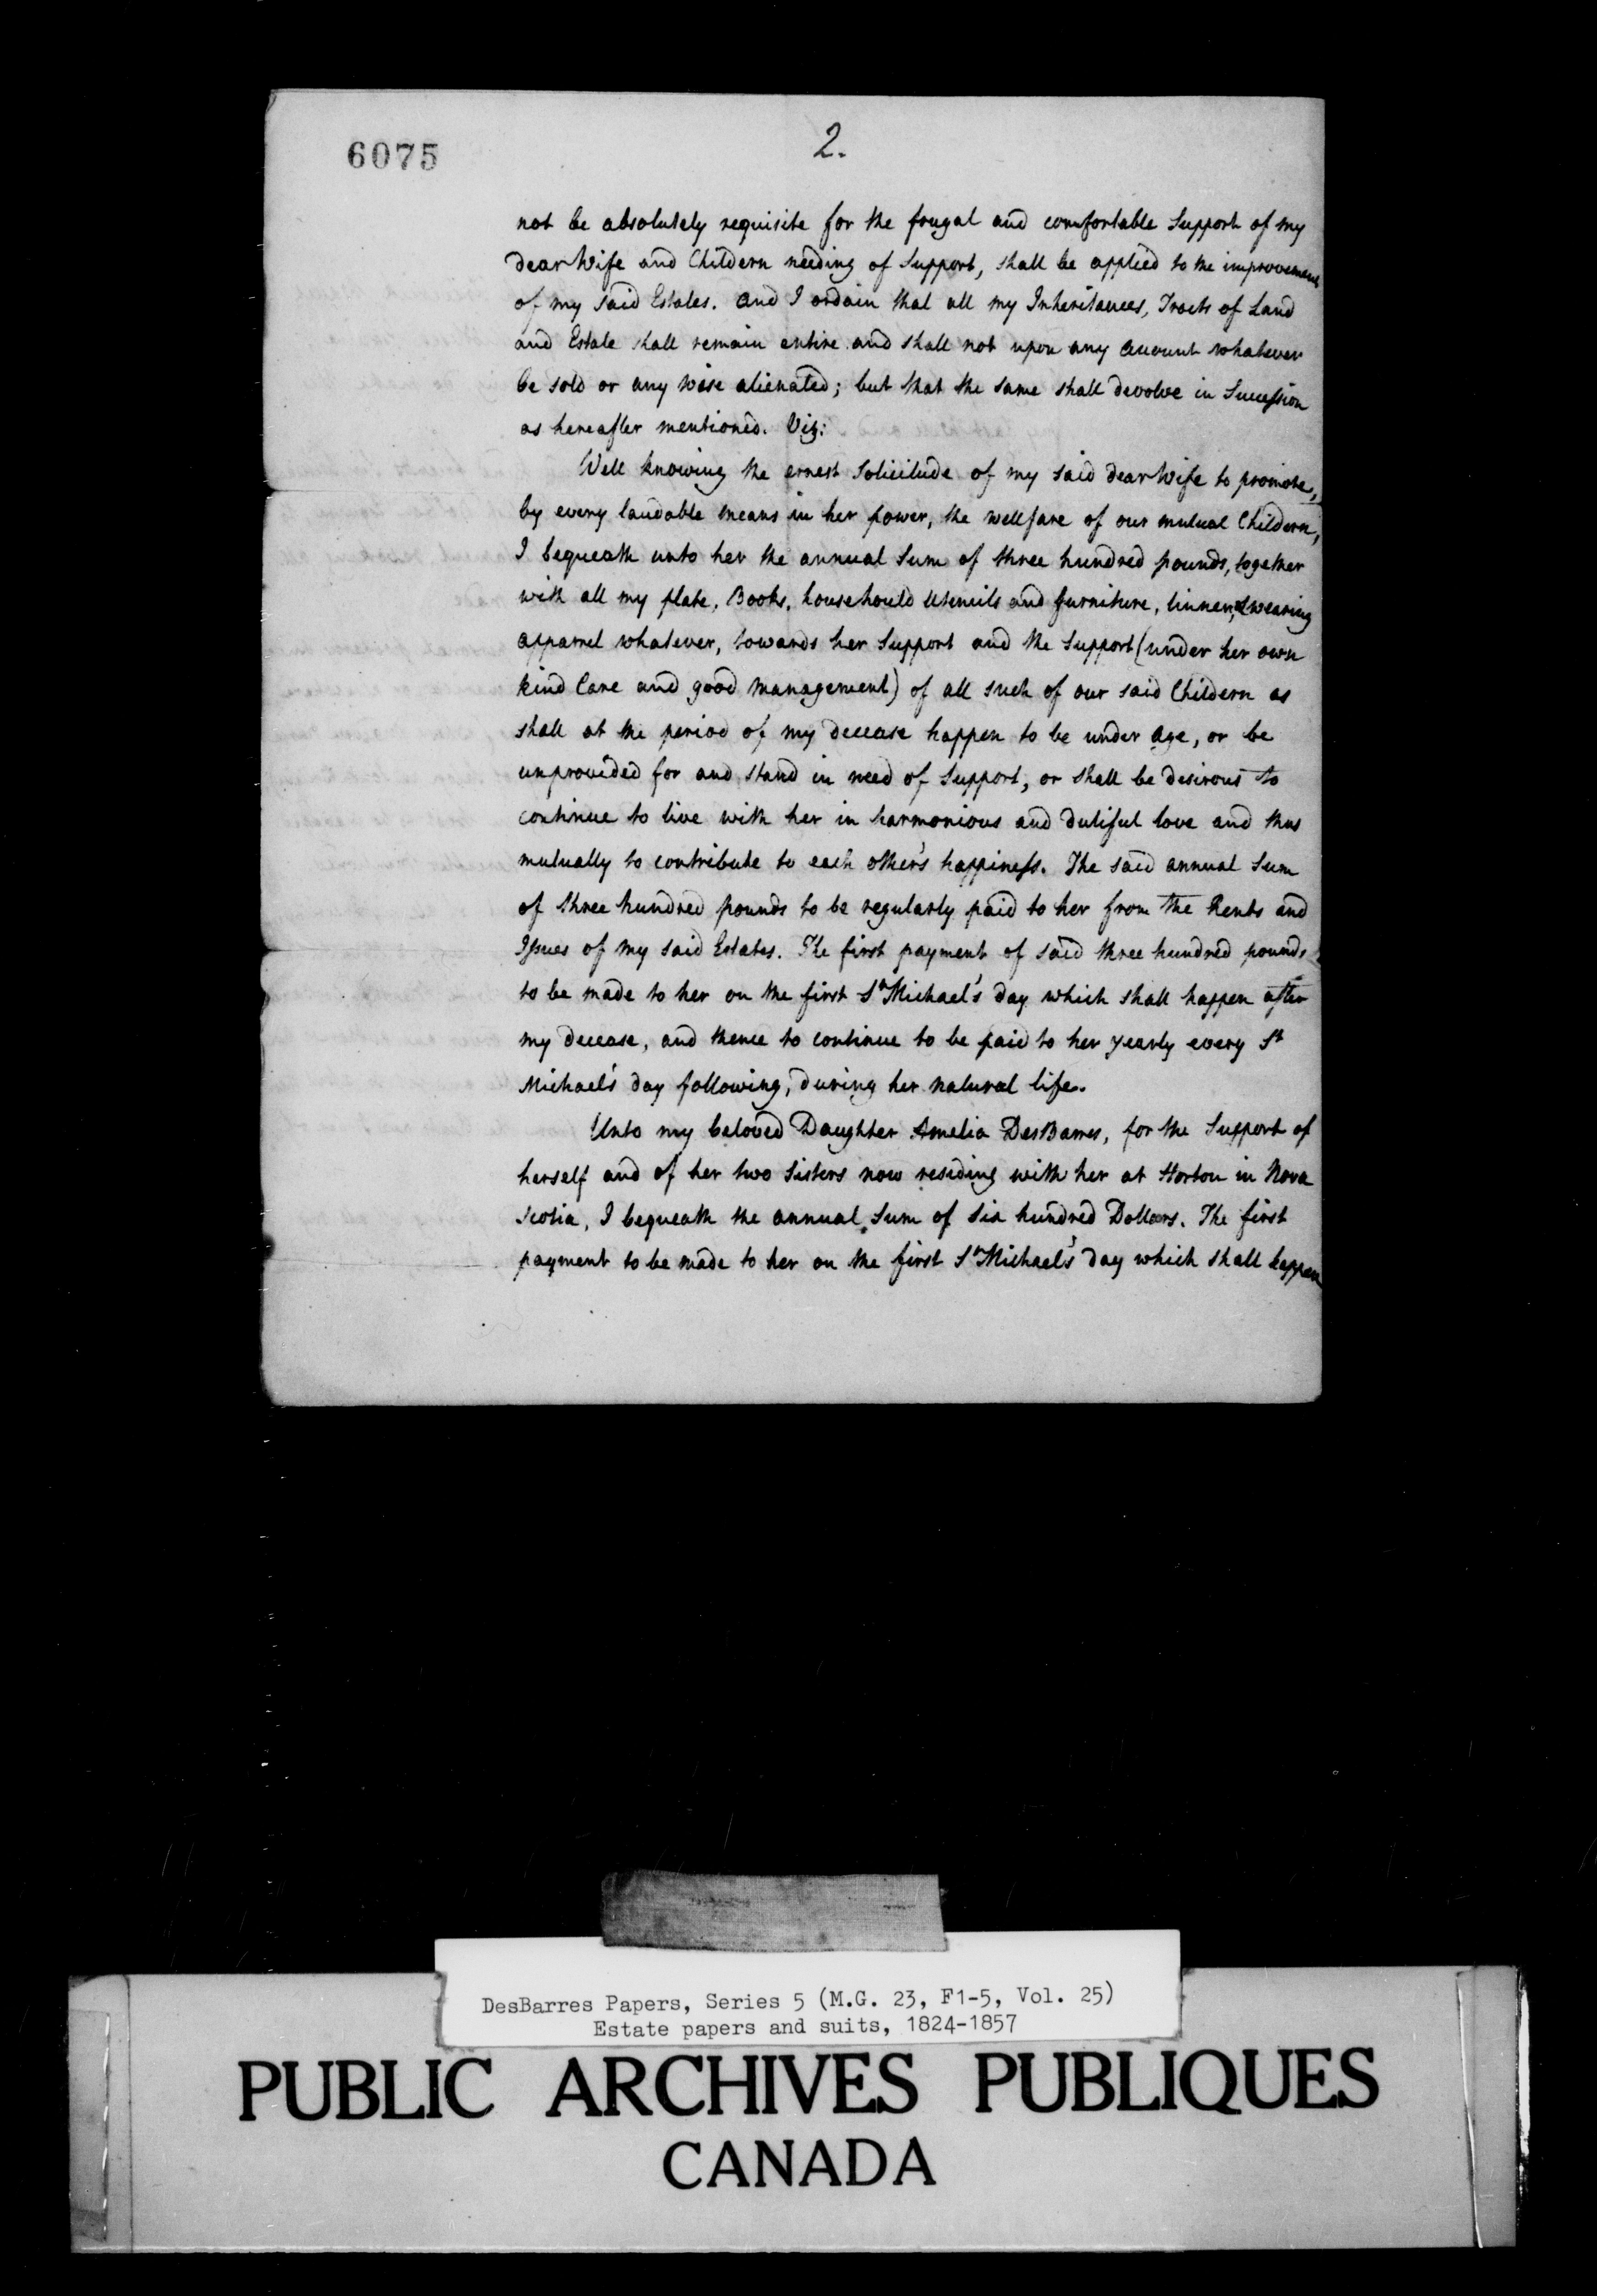 6075
2.
not be absolutely requisite for the frugal and comfortable Support of my
dear Wife and Childern needing of Support, shall be applied to the improvement
of my said Estates. and I ordain that all my Inheritances, Tracts of Land
and Estate shall remain entire and shall not upon any account whatever
be sold or any wise alienated; but that the same shall devolve in Sucession
as hereafter mentioned. Viz:
Well knowing the ernest Solicitude of my said dear Wife to promote,
by every laudable means in her power, the wellfare of our mutual Childern,
I bequeath unto her the annual Sum of three hundred pounds, together
with all my plate, Books, househould Utencils and furniture, linnen, & wearing
apparrel whatever, towards her Support and the Support (under her own
kind Care and good management) of all such of our said Childern as
shall at the period of my decease happen to be under age, or be
unprovided for and stand in need of Support, or shall be desirous to
continue to live with her in harmonious and dutiful love and thus
mutually to contribute to each other's happiness. The said annual Sum
of three hundred pounds to be regularly paid to her from the Rents and
Issues of my said Estates. The first payment of said three hundred pounds
to be made to her on the first St Michael's day which shall happen after
my decease, and thence to continue to be paid to her yearly every St
Michael's day following, during her natural life.
Unto my beloved Daughter Amelia DesBarres, for the Support of
herself and of her two Sisters now residing with her at Horton in Nova
Scotia, I bequeath the annual Sum of Six hundred Dollars. The first
payment to be made to her on the first St Michael's day which shall happen
DesBarres Papers, Series 5 (M.G. 23, F1-5, Vol. 25)
Estate papers and suits, 1824-1857
PUBLIC ARCHIVES PUBLIQUES
CANADA